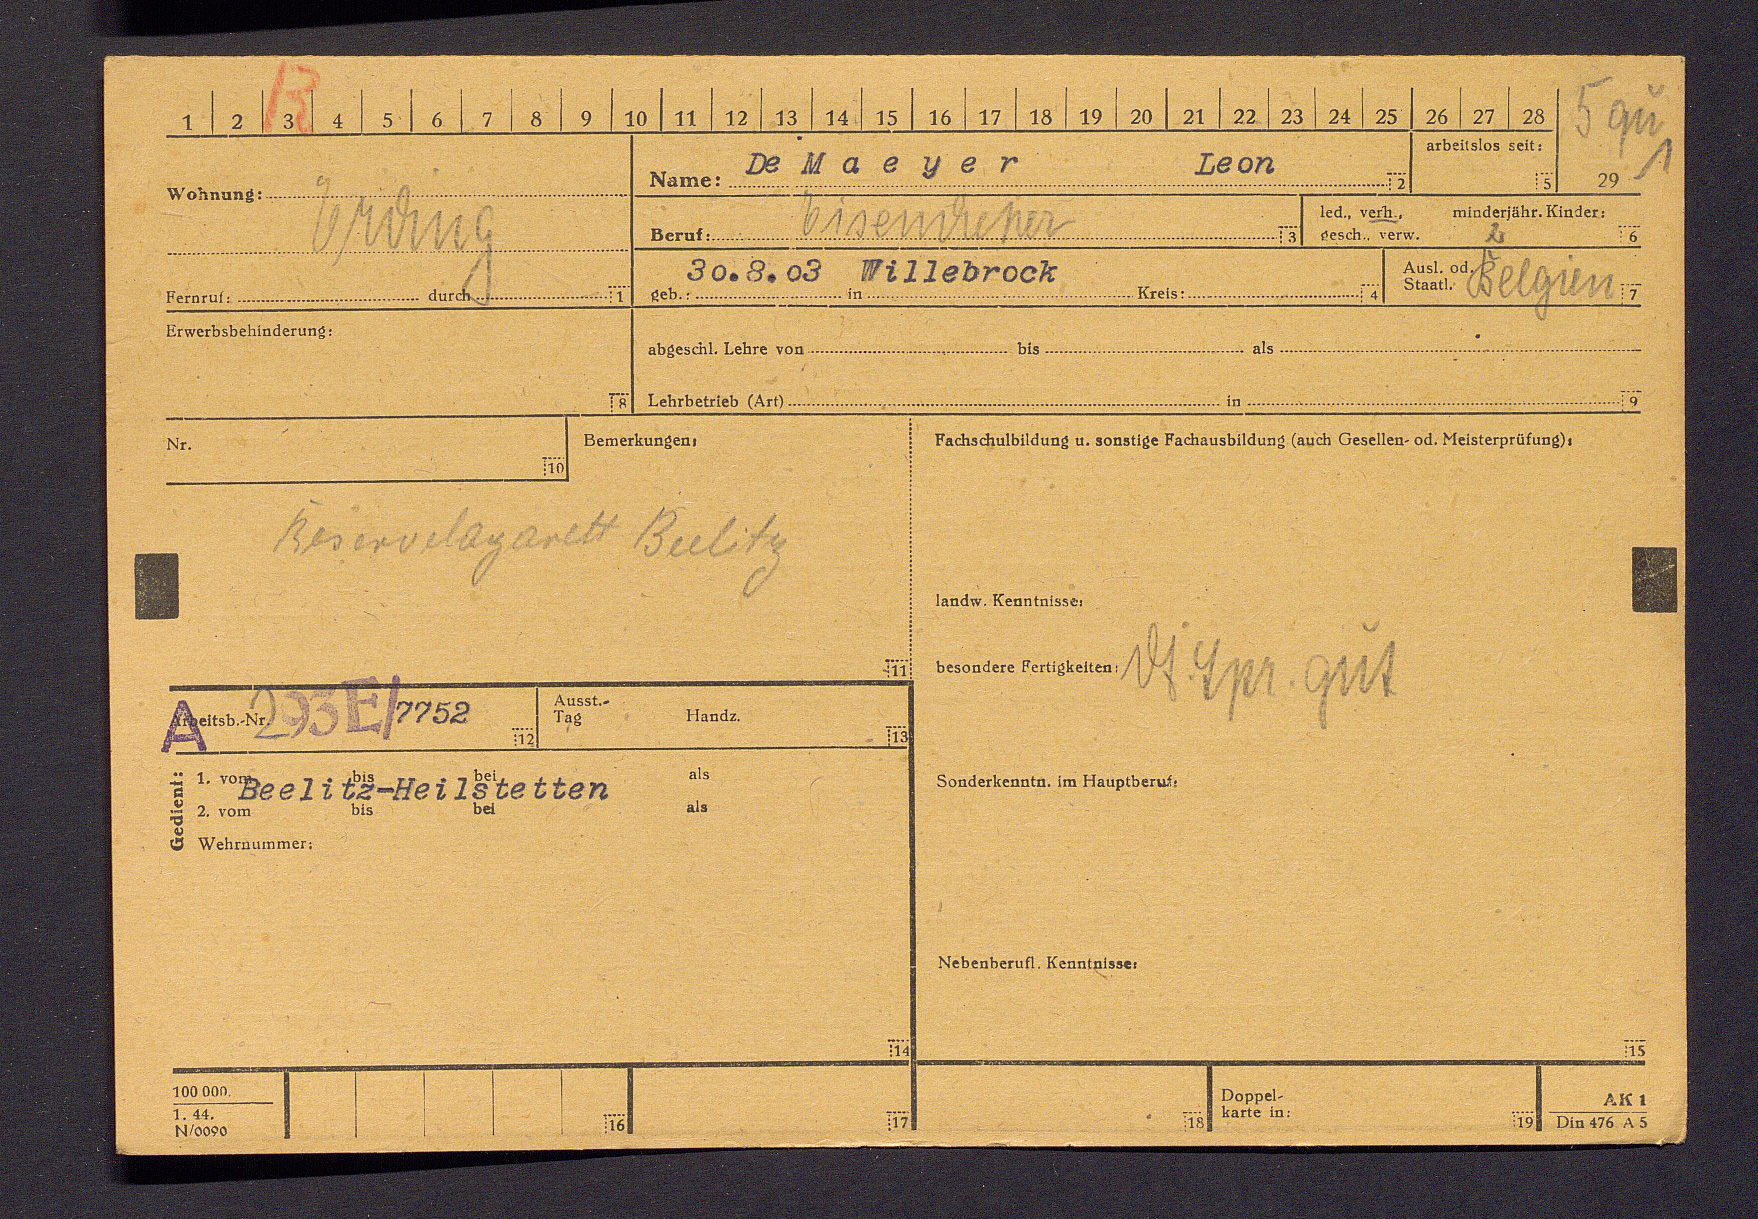 B
1 2 3 4 5 6 7 8 9 10 11 12 13 14 15 16 17 18 19 20 21 22 23 24 25 26 27 28
5 gü 1
29
Wohnung: Erding
Fernruf: durch 1
Name: De M a e y e r Leon 2
arbeitslos seit: 5
Beruf: Eisendreher 3
led., verh., minderjähr. Kinder:
gesch., verw. 2 6
30.8.03 Willebrock
geb.: in Kreis: 4
Ausl. od. Belgien
Staatl. 7
Erwerbsbehinderung: 8
abgeschl. Lehre von bis als
Lehrbetrieb (Art) in 9
Nr. 10
Bemerkungen:
Reservelazarett Beelitz
11
Fachschulbildung u. sonstige Fachausbildung (auch Gesellen- od. Meisterprüfung):
landw. Kenntnisse:
besondere Fertigkeiten: Spr. gut
Sonderkenntn. im Hauptberuf:
Nebenberufl. Kenntnisse:
15
A
Arbeitsb.-Nr. 293E/7752 12
Ausst.-
Tag Handz. 13
Gedient:
1. vom bis bei als
Beelitz-Heilstetten
2. vom bis bei als
Wehrnummer:
14
100 000.
1. 44.
N/0090
16 17 18
Doppel-
karte in: 19
AK 1
Din 476 A 5